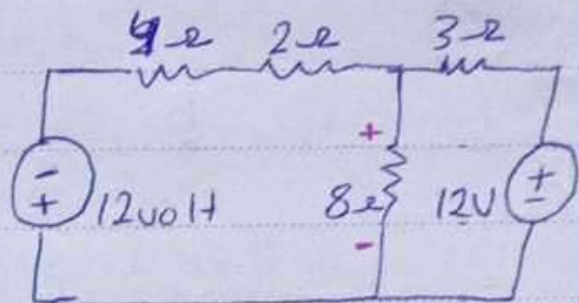 2Ω 3Ω
+
-
+
12volt
8Ω
12V
+
-
-